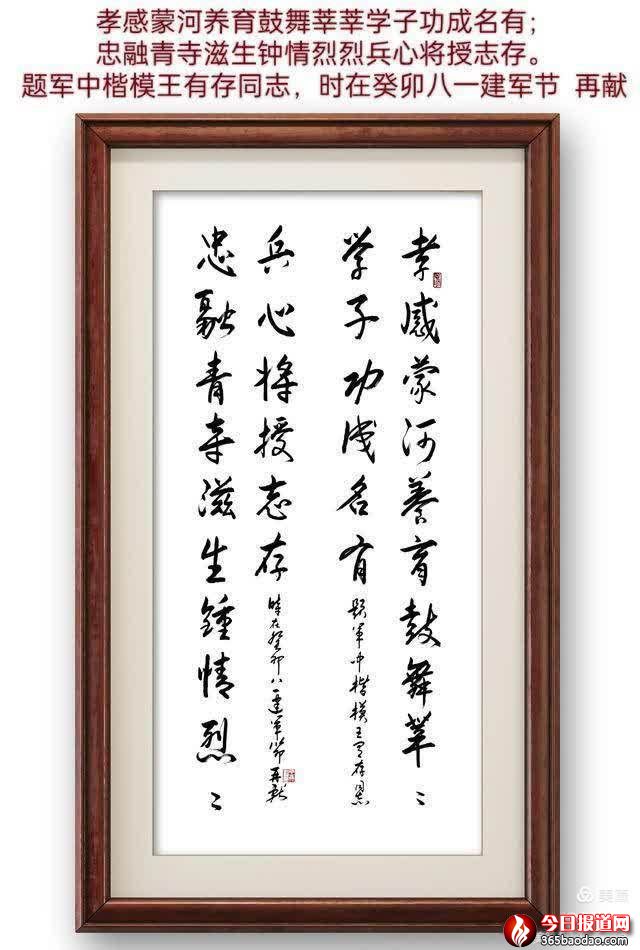 孝感蒙河养育鼓舞莘莘学子功成名有；
忠融青寺滋生钟情烈烈兵心将授志存。
题军中楷模王有存同志，时在癸卯八一建军节 再献
孝感蒙河養育鼓舞莘〻
学子功成名有
题军中楷模王有存同志
忠融青寺滋生鍾情烈〻
兵心将授志存
時在癸卯八一建军节再献
美篇
今日报道网
365baodao.com